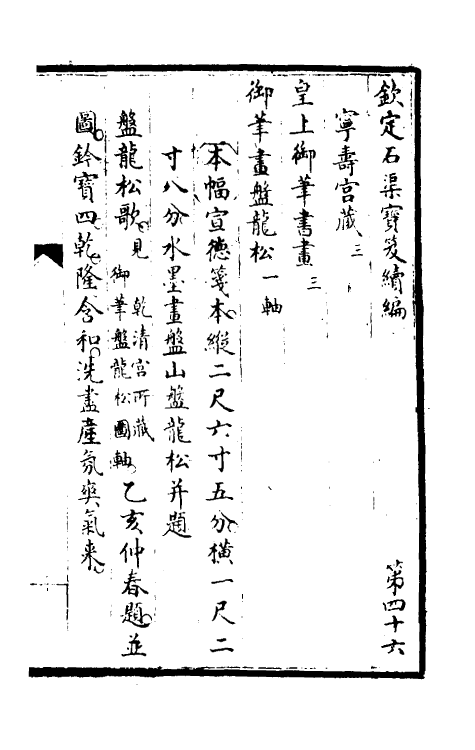 欽定石渠寶笈續編 第四十六
寧壽宮藏三
皇上御筆書畫三
御筆畫盤龍松一軸
本幅宣德箋本縱二尺六寸五分橫一尺二
寸八分水墨畫盤山盤龍松并題
盤龍松歌見乾清宮所藏
御筆盤龍松圖軸乙亥仲春題並
圖鈐寶四乾隆含和洗盡塵氛爽氣來